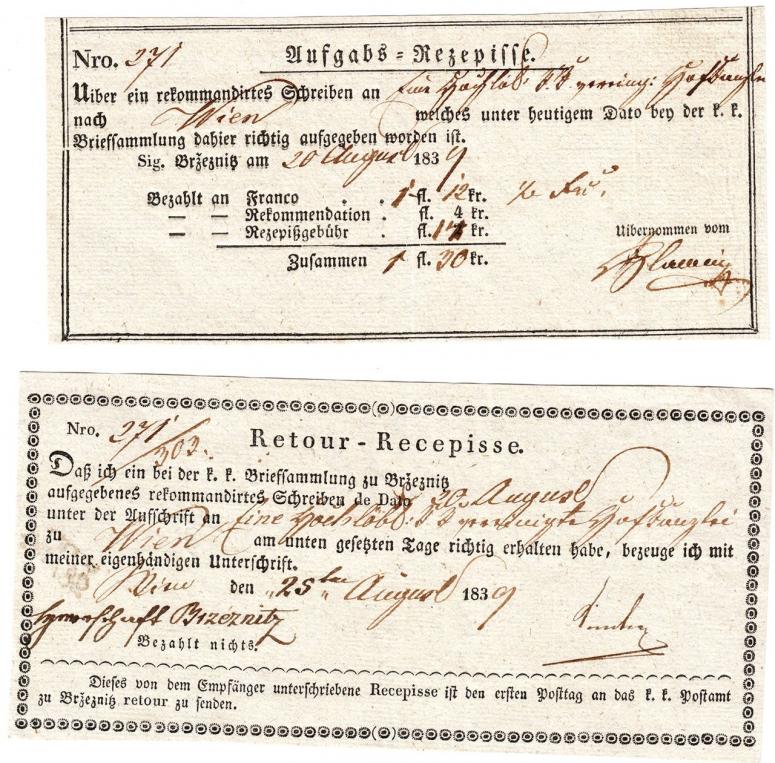 Nro. 271 Aufgabs-Rezepisse.
Uiber ein rekommandirtes Schreiben an Eine Hochlöb: k.k. vereinig: Hofkanzlei
nach Wien welches unter heutigem Dato bey der k. k.
Briefsammlung dahier richtig aufgegeben worden ist.
Sig. Bržeznitz am 20 August 1839
Bezahlt an Franco . . 1 fl. 12 kr.
— — Rekommendation . fl. 4 kr.
— — Rezepißgebühr . fl. 14 kr. Uibernommen vom
Zusammen 1 fl. 30 kr.
Nro. 271/303. Retour-Recepisse.
Daß ich ein bei der k. k. Briefsammlung zu Bržeznitz
aufgegebenes rekommandirtes Schreiben de Dato 20 August
unter der Aufschrift an Eine Hochlöbl: k.k. vereinigte Hofkanzlei
zu Wien am unten gesetzten Tage richtig erhalten habe, bezeuge ich mit
meiner eigenhändigen Unterschrift.
Wien den "25ten" August 1839
Herrschaft Brzéznitz
Bezahlt nichts.
Dieses von dem Empfänger unterschriebene Recepisse ist den ersten Posttag an das k. k. Postamt
zu Bržeznitz retour zu senden.